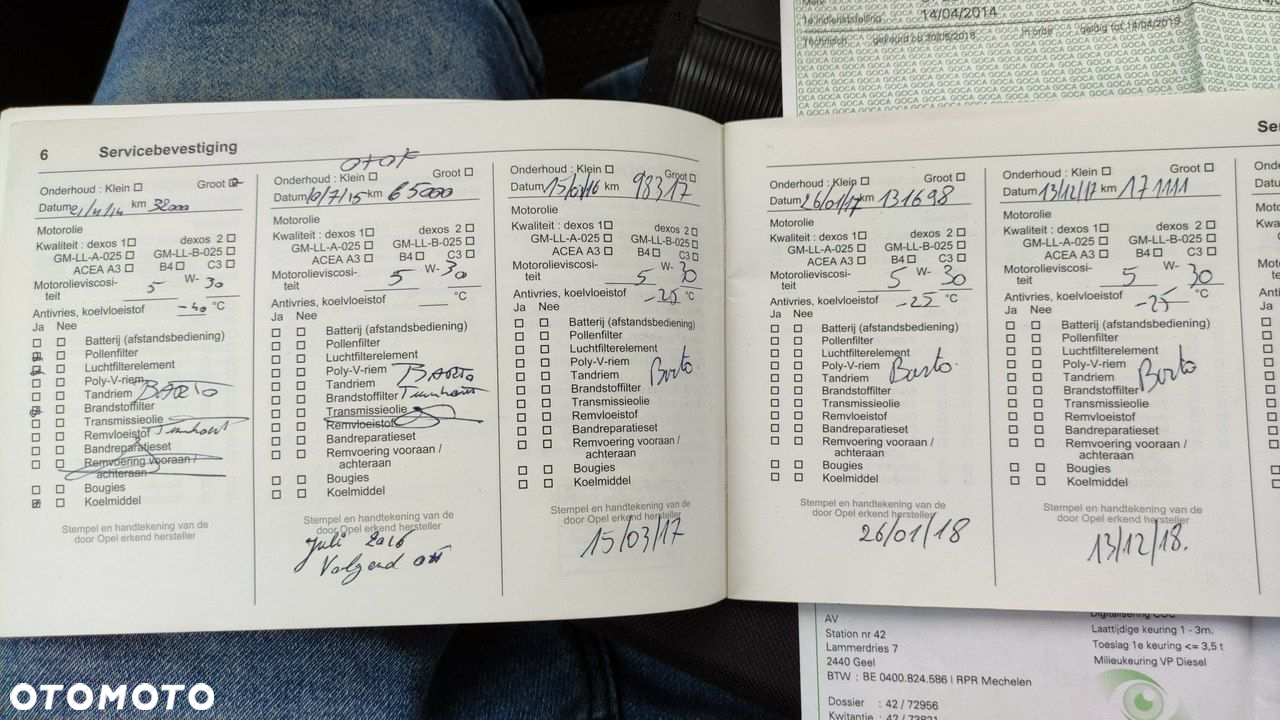 Merk
1e indienststelling 14/04/2014
Technisch gekeurd op 30/05/2018 In orde geldig tot 14/04/2019
GOCA GOCA GOCA GOCA GOCA GOCA
6 Servicebevestiging
Onderhoud : Klein Groot
Datum 21/11/14 km 32000
Motorolie
Kwaliteit : dexos 1 dexos 2
GM-LL-A-025 GM-LL-B-025
ACEA A3 B4 C3
Motorolieviscosi-
teit 5 W- 30
Antivries, koelvloeistof -40 °C
Ja Nee
Batterij (afstandsbediening)
Pollenfilter
Luchtfilterelement
Poly-V-riem
Tandriem BARTO
Brandstoffilter
Transmissieolie
Remvloeistof Turnhout
Bandreparatieset
Remvoering vooraan /
achteraan
Bougies
Koelmiddel
Stempel en handtekening van de
door Opel erkend hersteller
Onderhoud : Klein Groot
Datum 10/7/15 km 65000
Motorolie
Kwaliteit : dexos 1 dexos 2
GM-LL-A-025 GM-LL-B-025
ACEA A3 B4 C3
Motorolieviscosi-
teit 5 W- 30
Antivries, koelvloeistof °C
Ja Nee
Batterij (afstandsbediening)
Pollenfilter
Luchtfilterelement
Poly-V-riem
Tandriem BARTO
Brandstoffilter Turnhout
Transmissieolie
Remvloeistof
Bandreparatieset
Remvoering vooraan /
achteraan
Bougies
Koelmiddel
Stempel en handtekening van de
door Opel erkend hersteller
Juli 2016
Volgend OH
Onderhoud : Klein Groot
Datum 15/03/16 km 98317
Motorolie
Kwaliteit : dexos 1 dexos 2
GM-LL-A-025 GM-LL-B-025
ACEA A3 B4 C3
Motorolieviscosi-
teit 5 W- 30
Antivries, koelvloeistof -25 °C
Ja Nee
Batterij (afstandsbediening)
Pollenfilter
Luchtfilterelement
Poly-V-riem
Tandriem Barto.
Brandstoffilter
Transmissieolie
Remvloeistof
Bandreparatieset
Remvoering vooraan /
achteraan
Bougies
Koelmiddel
Stempel en handtekening van de
door Opel erkend hersteller
15/03/17
Se
Onderhoud : Klein Groot
Datum 26/01/17 km 131698
Motorolie
Kwaliteit : dexos 1 dexos 2
GM-LL-A-025 GM-LL-B-025
ACEA A3 B4 C3
Motorolieviscosi-
teit 5 W- 30
Antivries, koelvloeistof -25 °C
Ja Nee
Batterij (afstandsbediening)
Pollenfilter
Luchtfilterelement
Poly-V-riem
Tandriem Barto.
Brandstoffilter
Transmissieolie
Remvloeistof
Bandreparatieset
Remvoering vooraan /
achteraan
Bougies
Koelmiddel
Stempel en handtekening van de
door Opel erkend hersteller
26/01/18
Onderhoud : Klein Groot
Datum 13/12/17 km 171111
Motorolie
Kwaliteit : dexos 1 dexos 2
GM-LL-A-025 GM-LL-B-025
ACEA A3 B4 C3
Motorolieviscosi-
teit 5 W- 30
Antivries, koelvloeistof -25 °C
Ja Nee
Batterij (afstandsbediening)
Pollenfilter
Luchtfilterelement
Poly-V-riem
Tandriem Barto
Brandstoffilter
Transmissieolie
Remvloeistof
Bandreparatieset
Remvoering vooraan /
achteraan
Bougies
Koelmiddel
Stempel en handtekening van de
door Opel erkend hersteller
13/12/18.
AV
Station nr 42
Lammerdries 7
2440 Geel
BTW : BE 0400.824.586 | RPR Mechelen
Dossier : 42 / 72956
Kwitantie : 42 / 73821
Digitalisering COC
Laattijdige keuring 1 - 3m.
Toeslag 1e keuring <= 3,5 t
Milieukeuring VP Diesel
OTOMOTO